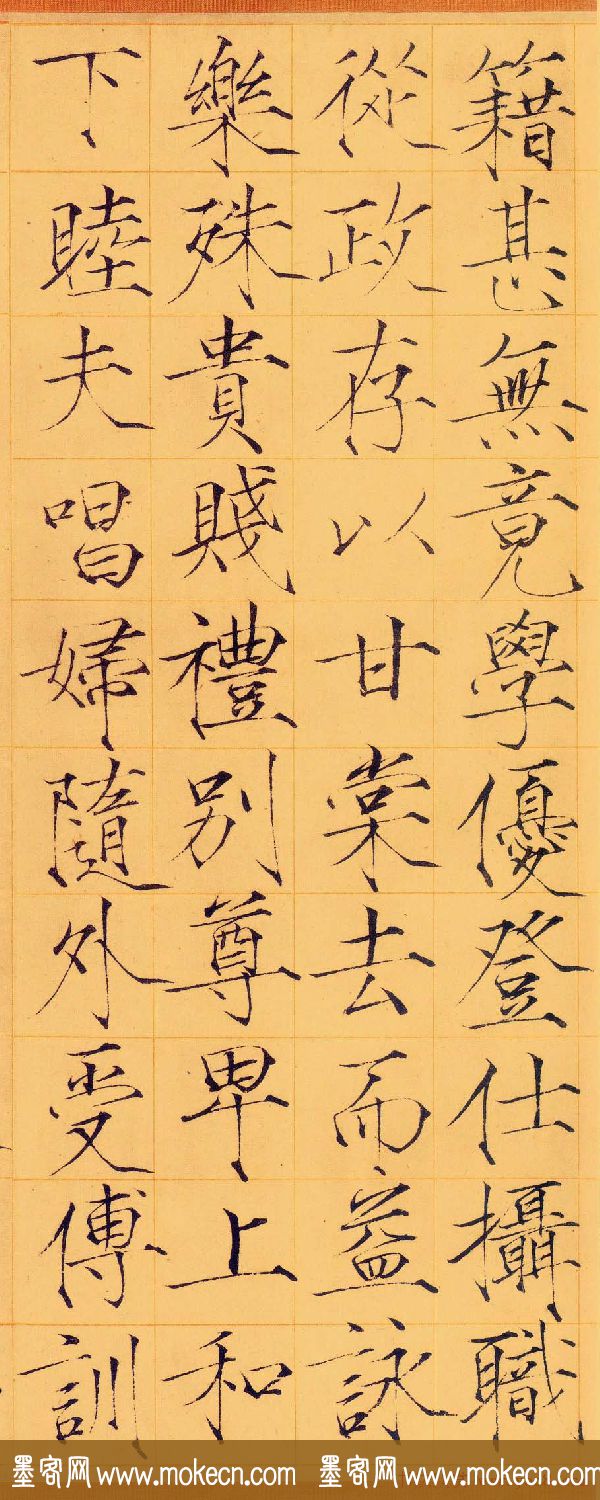 籍甚無竟學優登仕攝職
從政存以甘棠去而益詠
樂殊貴賤禮別尊卑上和
下睦夫唱婦隨外受傅訓
墨客网 www.mokecn.com 墨客网 www.mokecn.com